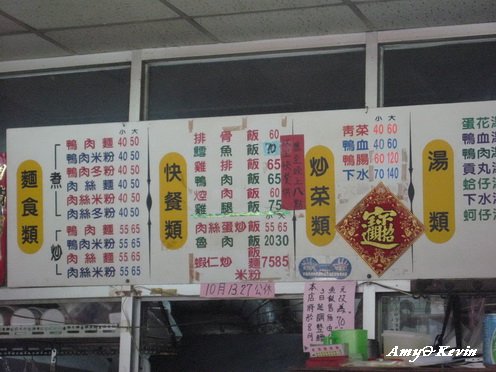 麵食類
小 大
煮
鴨肉麵 40 50
鴨肉米粉 40 50
鴨肉冬粉 40 50
肉絲麵 40 50
肉絲米粉 40 50
肉絲冬粉 40 50
炒
鴨肉麵 55 65
鴨肉米粉 55 65
肉絲麵 55 65
肉絲米粉 55 65
快餐類
排骨飯 60
鱈魚飯 70
雞排飯 65
鴨肉飯 65
焢肉飯 60
雞腿飯 75
肉絲蛋炒飯 55 65
魯肉飯 20 30
蝦仁炒飯麵米粉 75 85
炒菜類
小 大
青菜 40 60
鴨血 40 60
鴨腸 60 120
下水 70 140
招財進寶
湯類
蛋花湯
鴨血
鴨肉
貢丸湯
蛤仔
下水
蚵仔
10月13.27公休
Amy@Kevin